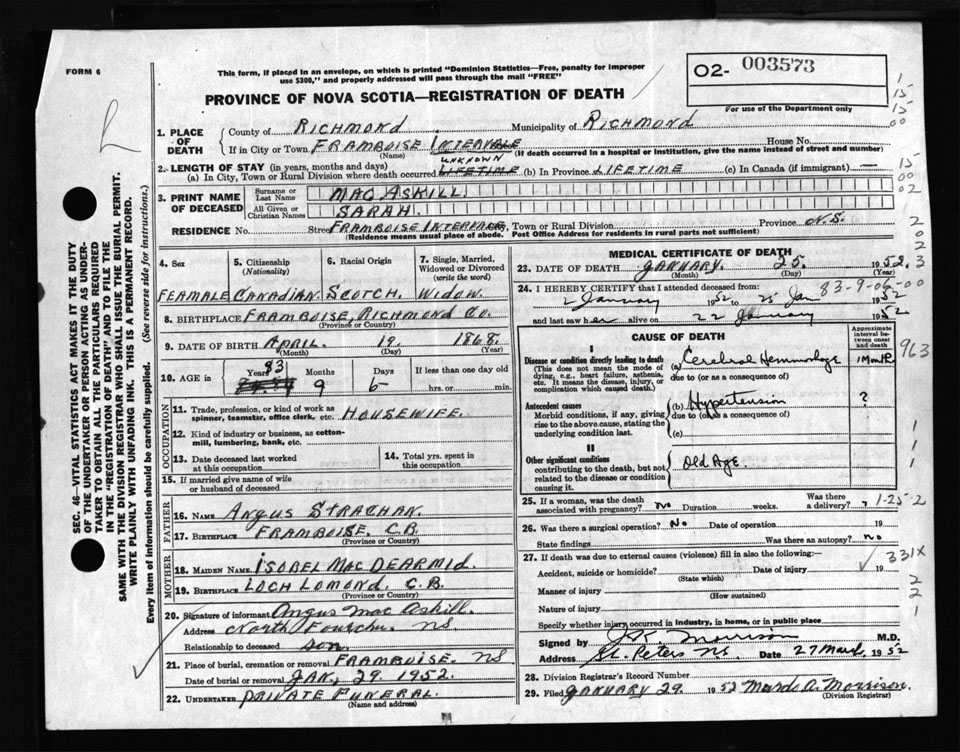 FORM 6
This form, if placed in an envelope, on which is printed "Dominion Statistics—Free, penalty for improper
use $300," and properly addressed will pass through the mail "FREE"
O2- 003573
For use of the Department only
PROVINCE OF NOVA SCOTIA—REGISTRATION OF DEATH
1. PLACE OF DEATH
County of RICHMOND Municipality of RICHMOND
If in City or Town FRAMBOISE INTERVALE House No.
(Name) (If death occurred in a hospital or institution, give the name instead of street and number)
2. LENGTH OF STAY (in years, months and days)
UNKNOWN
(a) In City, Town or Rural Division where death occurred LIFETIME (b) In Province LIFETIME (c) In Canada (if immigrant)
3. PRINT NAME OF DECEASED
Surname or Last Name MAC ASKILL
All Given or Christian Names SARAH
RESIDENCE No. Street FRAMBOISE INTERVALE City, Town or Rural Division Province N.S.
(Residence means usual place of abode. Post Office Address for residents in rural parts not sufficient)
4. Sex
FEAMALE
5. Citizenship
(Nationality)
CANADIAN
6. Racial Origin
SCOTCH
7. Single, Married,
Widowed or Divorced
(write the word)
WIDOW
8. BIRTHPLACE FRAMBOISE, RICHMOND CO.
(Province or Country)
9. DATE OF BIRTH APRIL 19. 1868
(Month) (Day) (Year)
10. AGE in Years 83 Months 9 Days 6 If less than one day old
hrs. or min.
OCCUPATION
11. Trade, profession, or kind of work as
spinner, teamster, office clerk, etc. HOUSEWIFE.
12. Kind of industry or business, as cotton-
mill, lumbering, bank, etc.
13. Date deceased last worked
at this occupation
14. Total yrs. spent in
this occupation
15. If married give name of wife
or husband of deceased
FATHER
16. NAME ANGUS STRACHAN
17. BIRTHPLACE FRAMBOISE, C.B.
(Province or Country)
MOTHER
18. MAIDEN NAME ISOBEL MAC DEARMID.
19. BIRTHPLACE LOCH LOMOND, C.B.
(Province or Country)
20. Signature of informant Angus Mac Askill
Address North Fourchu NS.
Relationship to deceased son
21. Place of burial, cremation or removal FRAMBOISE. NS
Date of burial or removal JAN, 29 1952.
22. UNDERTAKER PRIVATE FUNERAL.
(Name and address)
MEDICAL CERTIFICATE OF DEATH
23. DATE OF DEATH JANUARY. 25. 1952.
(Month) (Day) (Year)
24. I HEREBY CERTIFY that I attended deceased from:
2 January 1952 to 25 Jan 1952
83-9-06-00
and last saw her alive on 22 January 1952
CAUSE OF DEATH
Approximate
interval
between onset
and death
I
Disease or condition directly leading to death
(This does not mean the mode of
dying, e.g., heart failure, asthenia,
etc. It means the disease, injury, or
complication which caused death.)
(a) Cerebral Hemorrhage 1 Month
due to (or as a consequence of)
Antecedent causes
Morbid conditions, if any, giving
rise to the above cause, stating the
underlying condition last.
(b) Hypertension ?
due to (or as a consequence of)
(c)
II
Other significant conditions
contributing to the death, but not
related to the disease or condition
causing it.
Old Age.
25. If a woman, was the death
associated with pregnancy? No Duration weeks. Was there
a delivery?
1-25-2
26. Was there a surgical operation? No Date of operation 19
State findings Was there an autopsy? no
27. If death was due to external causes (violence) fill in also the following:—
331X
Accident, suicide or homicide? Date of injury 19
(State which)
Manner of injury
(How sustained)
Nature of injury
Specify whether injury occurred in industry, in home, or in public place
Signed by J.K. Morrison M.D.
Address St. Peters N.S. Date 27 March 1952
28. Division Registrar's Record Number
29. Filed JANUARY 29 1952 Murdo A. Morrison.
(Division Registrar)
SEC. 46—VITAL STATISTICS ACT MAKES IT THE DUTY
OF THE UNDERTAKER OR PERSON ACTING AS UNDER-
TAKER TO OBTAIN ALL THE PARTICULARS REQUIRED
IN THE "REGISTRATION OF DEATH" AND TO FILE THE
SAME WITH THE DIVISION REGISTRAR WHO SHALL ISSUE THE BURIAL PERMIT.
WRITE PLAINLY WITH UNFADING INK. THIS IS A PERMANENT RECORD.
Every item of information should be carefully supplied. (See reverse side for instructions.)
1
15
15
00
15
00
02
2
0
2
3
963
1
1
1
2
2
1